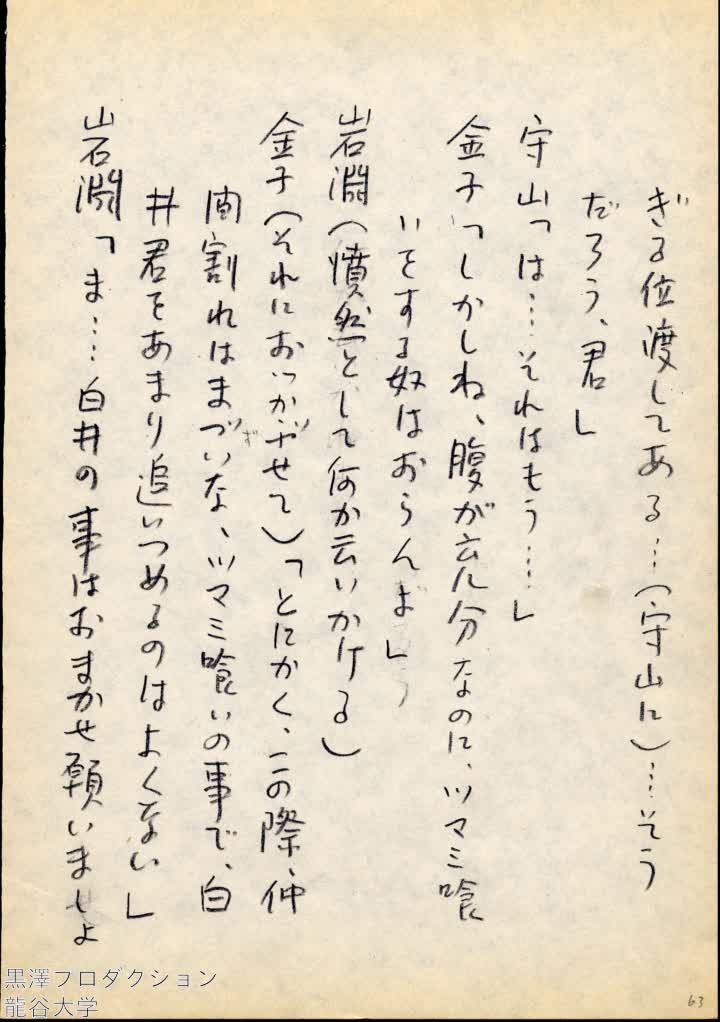 ぎる位渡してある…(守山に)…そう
だろう、君」
守山「は…それはもう…」
金子「しかしね、腹が充分なのに、ツマミ喰
いをする奴はおらんよ」
岩淵(憤然として何か云いかける)
金子(それにおっかぶせて)「とにかく、この際、仲
間割れはまづいな、ツマミ喰いの事で、白
井君をあまり追いつめるのはよくない」
岩淵「ま…白井の事はおまかせ願いましょ
黒澤プロダクション
龍谷大学
63